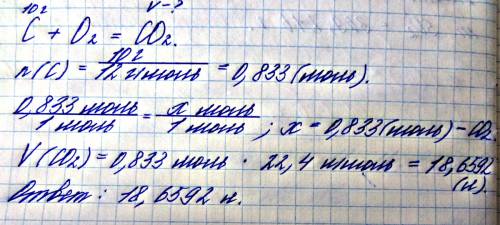 10 г V-?
C + O2 = CO2.
n(C) = 10 г / 12 г/моль = 0,833 (моль).
0,833 моль / 1 моль = x моль / 1 моль ; x = 0,833 (моль) - CO2.
V(CO2) = 0,833 моль · 22,4 л/моль = 18,6592 (л).
Ответ: 18,6592 л.